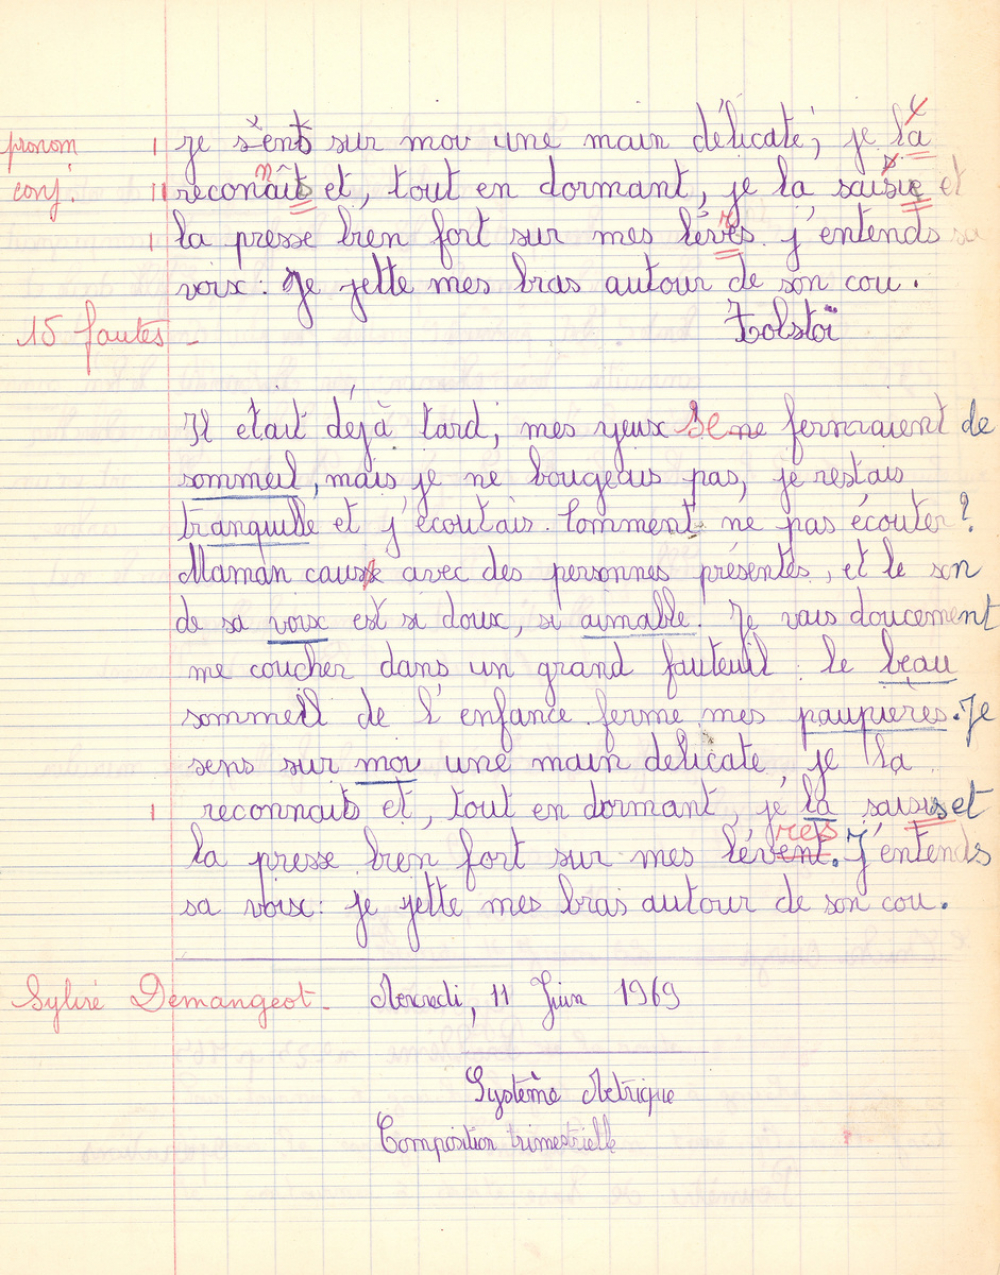 pronom | je sens sur moi une main délicate; je la
conj: || reconnaît et, tout en dormant, je la saisie et
| la presse bien fort sur mes lèvres. j'entends sa
voix: Je jette mes bras autour de son cou.
15 fautes - Tolstoï
Il était déjà tard; mes yeux se ne fermaient de
sommeil, mais je ne bougeais pas, je restais
tranquille et j'écoutais. Comment ne pas écouter?
Maman cause avec des personnes présentes, et le son
de sa voix est si doux, si aimable! Je vais doucement
me coucher dans un grand fauteuil: le beau
sommeil de l'enfance ferme mes paupières. Je
sens sur moi une main delicate, je la
| reconnais et, tout en dormant, je la saisis et
res
la presse bien fort sur mes lévent. J'entends
sa voix: je jette mes bras autour de son cou.
Sylvie Demangeot - Mercredi, 11 Juin 1969
Système Métrique
Composition trimestrielle